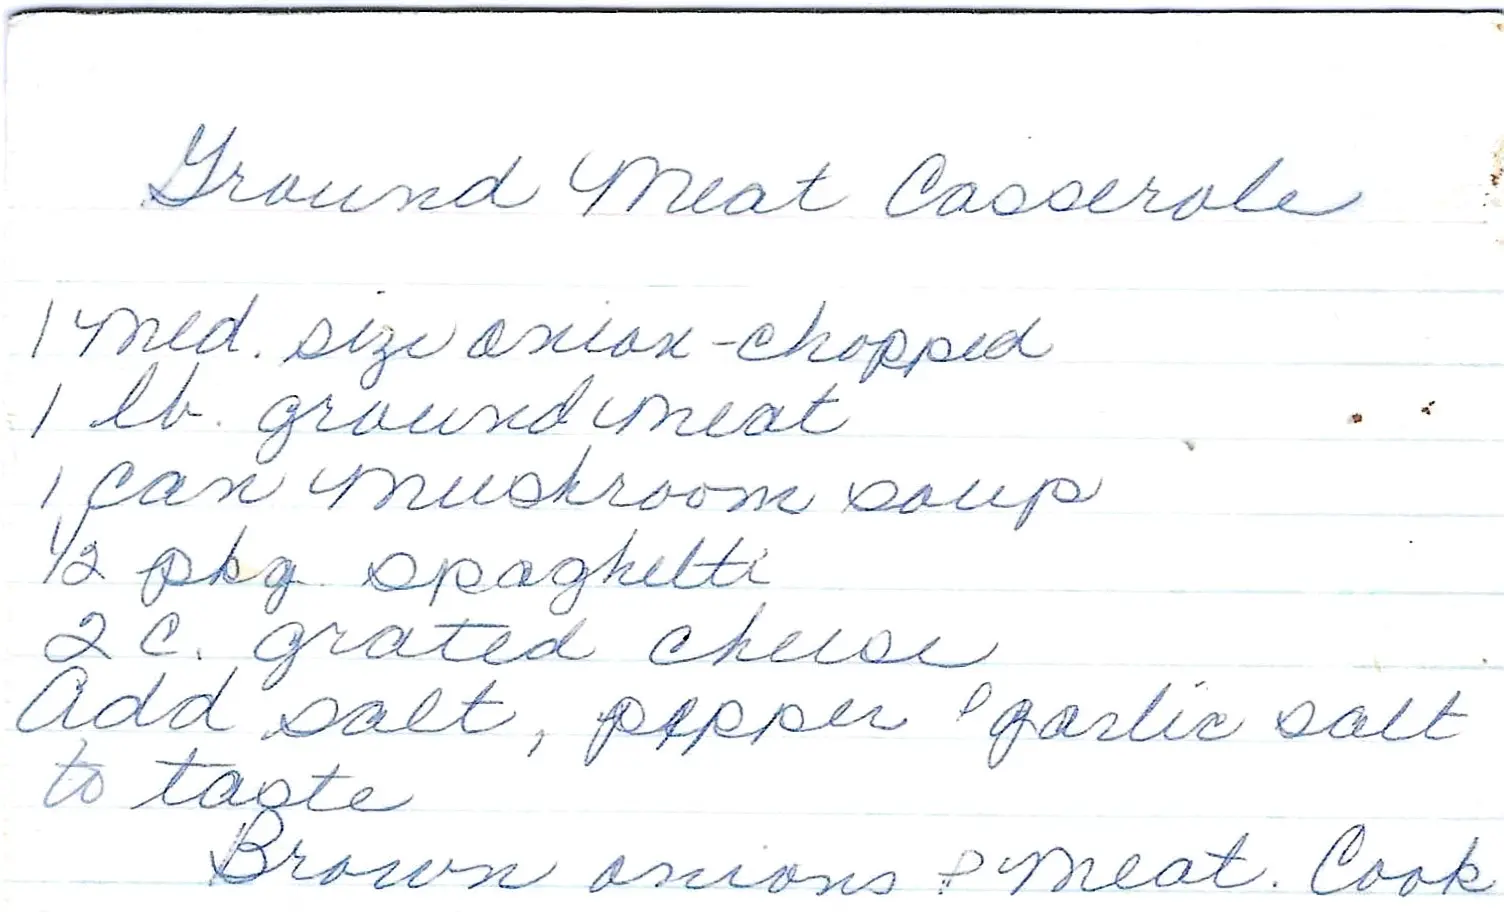 Ground Meat Casserole
1 med. size onion - chopped
1 lb. ground meat
1 can mushroom soup
1/2 pkg. spaghetti
2 c. grated cheese
Add salt, pepper & garlic salt
to taste
Brown onions & meat. Cook